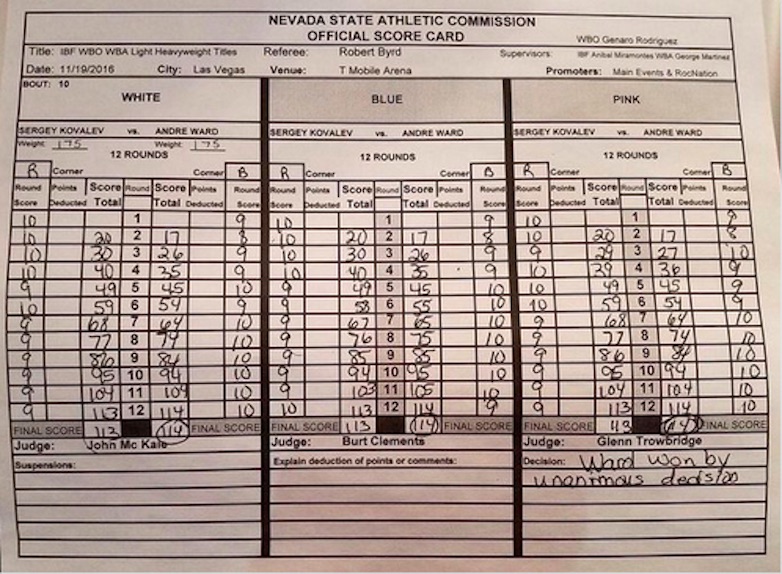 NEVADA STATE ATHLETIC COMMISSION
OFFICIAL SCORE CARD
WBO Genaro Rodriguez
Title: IBF WBO WBA Light Heavyweight Titles Referee: Robert Byrd Supervisors: IBF Anibal Miramontes WBA George Martinez
Date: 11/19/2016 City: Las Vegas Venue: T Mobile Arena Promoters: Main Events & RocNation
BOUT: 10
WHITE BLUE PINK
SERGEY KOVALEV vs. ANDRE WARD SERGEY KOVALEV vs. ANDRE WARD SERGEY KOVALEV vs. ANDRE WARD
Weight: 175 Weight: 175
12 ROUNDS 12 ROUNDS 12 ROUNDS
R Corner Corner B R Corner Corner B R Corner Corner B
Round Points Score Round Score Points Round Round Points Score Round Score Points Round Round Points Score Round Score Points Round
Score Deducted Total Total Deducted Score Score Deducted Total Total Deducted Score Score Deducted Total Total Deducted Score
10 1 9 10 1 9 10 1 9
10 20 2 17 8 10 20 2 17 8 10 20 2 17 8
10 30 3 26 9 10 30 3 26 9 9 29 3 27 10
10 40 4 35 9 10 40 4 35 9 10 39 4 36 9
9 49 5 45 10 9 49 5 45 10 9 49 5 45 9
10 59 6 54 9 9 58 6 55 10 10 59 6 54 9
9 68 7 64 10 9 67 7 65 10 9 68 7 64 10
9 77 8 74 10 9 76 8 75 10 9 77 8 74 10
9 86 9 84 10 9 85 9 85 10 9 86 9 84 10
9 95 10 94 10 9 94 10 95 10 9 95 10 94 10
9 104 11 104 10 9 103 11 105 10 9 104 11 104 10
9 113 12 114 10 10 113 12 114 9 9 113 12 114 10
FINAL SCORE 113 114 FINAL SCORE FINAL SCORE 113 114 FINAL SCORE FINAL SCORE 114 FINAL SCORE
Judge: John Mc Kaie Judge: Burt Clements Judge: Glenn Trowbridge
Suspensions: Explain deduction of points or comments: Decision: Ward won by
unanimous decision